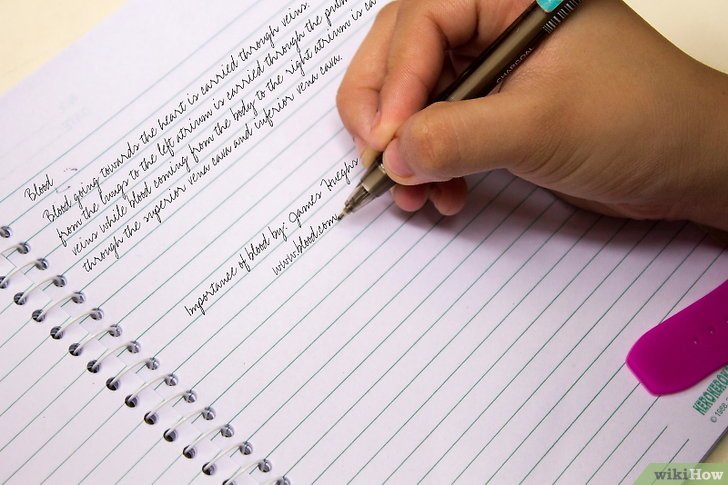 Blood
Blood going towards the heart is carried through veins.
from the lungs to the left atrium is carried through the
veins while blood coming from the body to the right atrium is
through the superior vena cava and inferior vena cava.
Importance of blood by: James Hueghs
www.blood.com
CHARCOAL
KEROKEROK
© 198
wikiHow